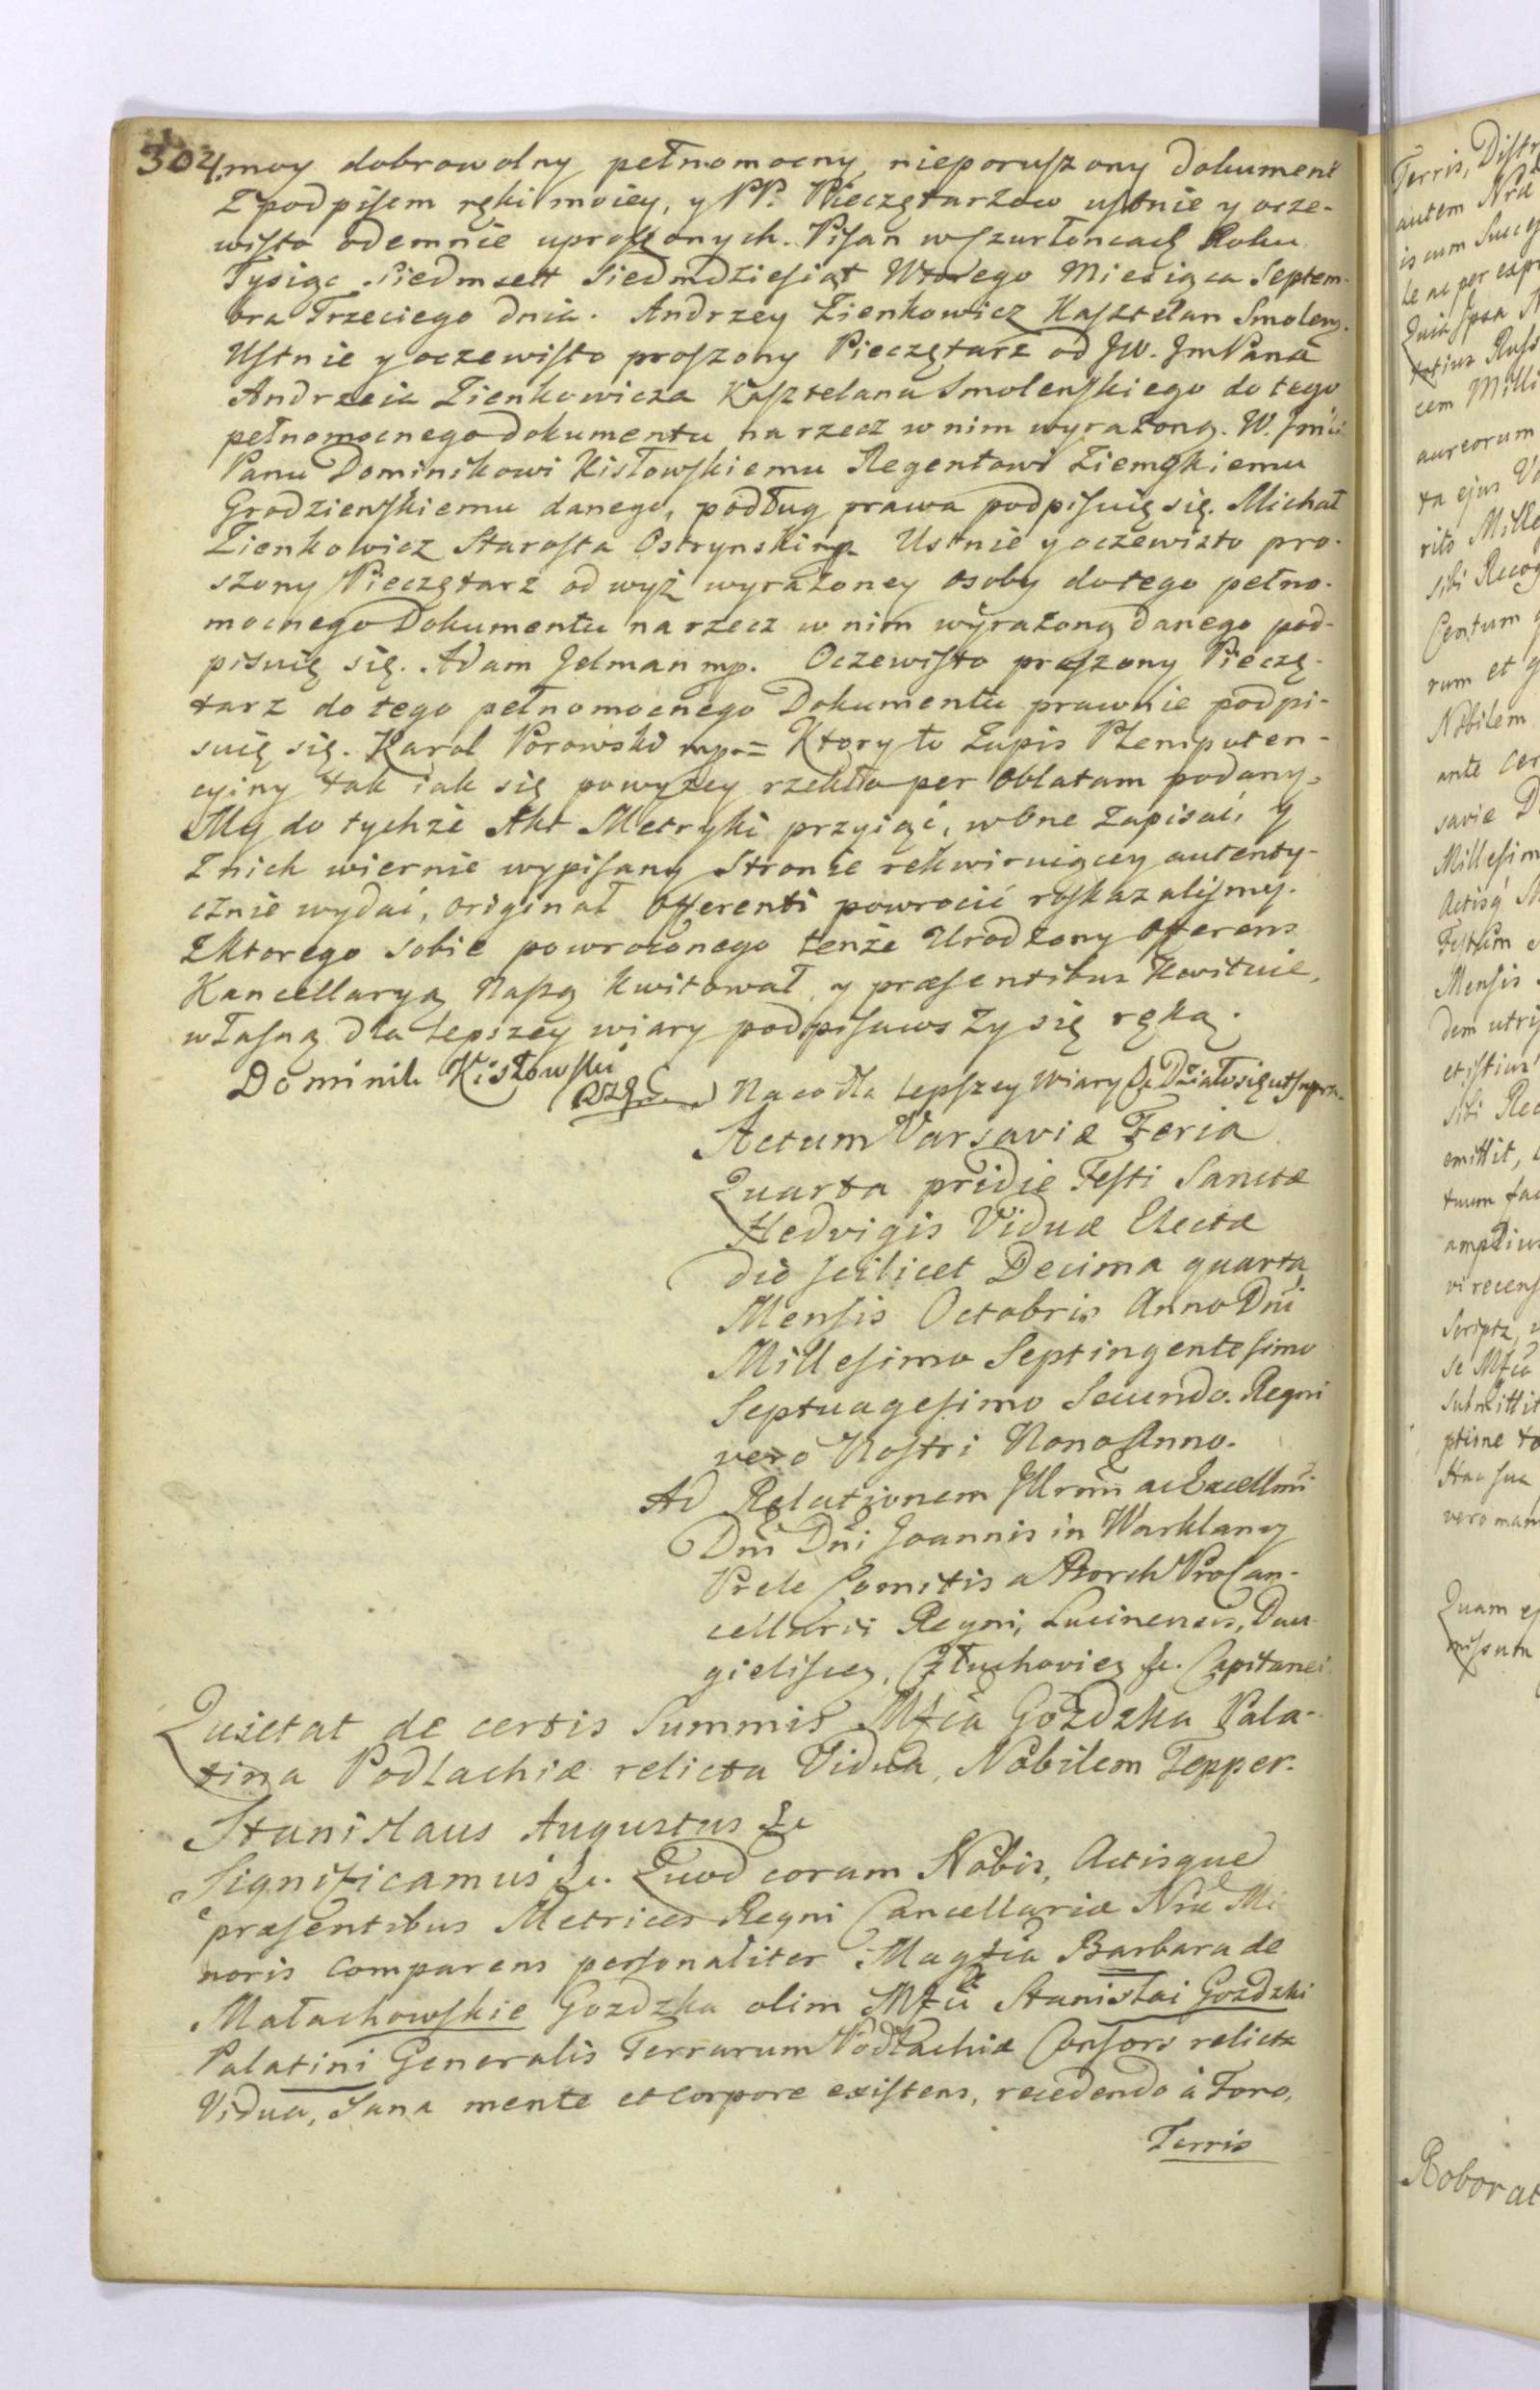 304. moy dobrowolny pełnomocny nieporuszony dokument
z podpisem ręki moiey, y PP. Pieczętarzow ustnie y ocze-
wisto odemnie uproszonych. Pisan w Szurłoncach Roku
Tysiąc Siedmsett Siedmdziesiąt Wtorego Miesiąca Septem-
bra Trzeciego dnia. Andrzey Zienkowicz Kasztelan Smoleń.
Ustnie y oczewisto proszony Pieczętarz od JW. JmPana
Andrzeia Zienkowicza Kasztelana Smoleńskiego do tego
pełnomocnego dokumentu na rzecz w nim wyrażoną. W. Jmci
Panu Dominikowi Kisłowskiemu Regentowi Ziemskiemu
Grodzieńskiemu danego, podług prawa podpisuię się. Michał
Zienkowicz Starosta Ostrynski mp. Ustnie y oczewisto pro-
szony Pieczętarz od wyż wyrażoney osoby do tego pełno-
mocnego Dokumentu na rzecz w nim wyrażoną danego pod-
pisuię się. Adam Jelman mp. Oczewisto proszony Pieczę-
tarz do tego pełnomocnego Dokumentu prawnie podpi-
suię się. Karol Porowski mp. = Ktory to Zapis Plenipoten-
cyiny tak iak się powyżey rzekło per Oblatam podany,
My do tychże Akt Metryki przyiąć, w One zapisać, y
z nich wiernie wypisany Stronie rekwiruiącey autenty-
cznie wydać, originał Offerenti powrocić roskazalismy.
Z ktorego sobie powroconego tenże Urodzony Offerens
Kancellaryą Naszą kwitował, y præsentibus kwituie,
własną dla lepszey wiary podpisawszy się ręką.
Dominik Kisłowski
Na co dla lepszey Wiary &c. Działo się ut supra.
Actum Varsaviæ Feria
Quarta pridie Festi Sanctæ
Hedvigis Viduæ Electæ
die scilicet Decima quarta
Mensis Octobris Anno Dni
Millesimo Septingentesimo
Septuagesimo Secundo. Regni
vero Nostri Nono Anno.
Ad Relationem Illrmi ac Excellmi
Dni Dni Joannis in Warklany
Prele Comitis a Borch ProCan-
cellarii Regni, Lucinensis,
Człuchovien &c. Capitanei
Quietat de certis Summis Mfca Gozdzka Pala-
tina Podlachiæ relicta Vidua, Nobilem Tepper.
Stanislaus Augustus &c
Significamus &c. Quod coram Nobis, Actisque
præsentibus Metrices Regni Cancellariæ Nræ Mi
noris comparens personaliter Magfca Barbara de
Małachowskie Gozdzka olim Mfci Stanislai Gozdzki
Palatini Generalis Terrarum Podlachiæ Consors relicta
Vidua, sana mente et corpore existens, recedendo à Foro,
Terris